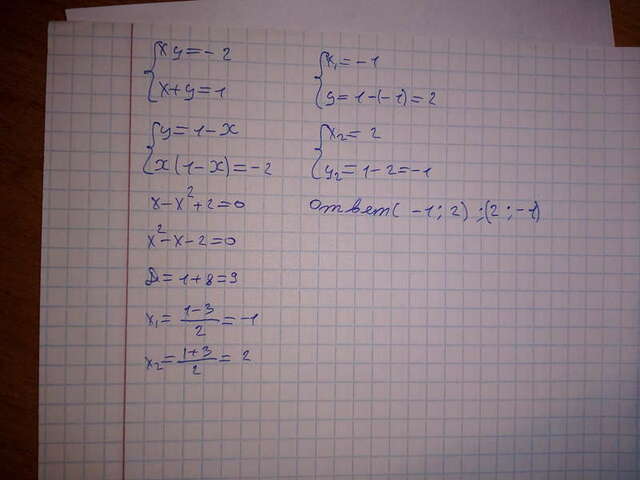 xy = -2
x+y=1
y=1-x
x(1-x)=-2
x-x²+2=0
x²-x-2=0
D=1+8=9
x₁= (1-3)/2 = -1
x₂= (1+3)/2 = 2
x₁=-1
y=1-(-1)=2
x₂=2
y₂=1-2=-1
ответ( -1; 2) ;(2 ; -1)